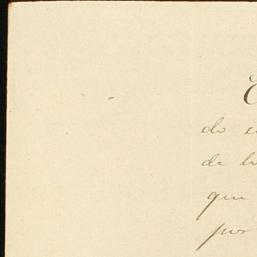 E
do e
de h
que
por